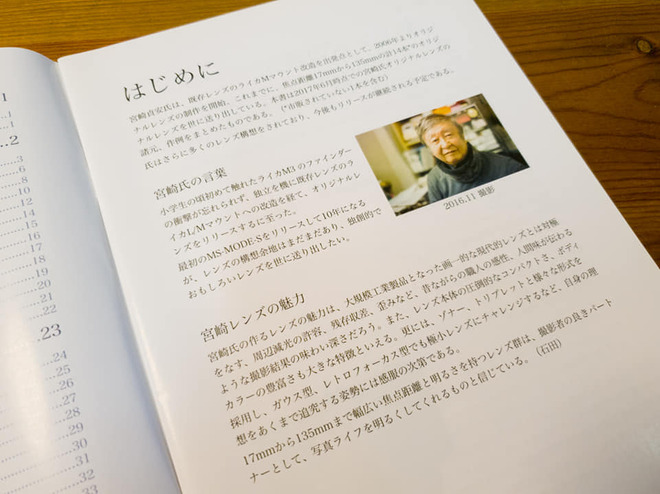 1
...1
...2
...3
...4
...9
10
12
14
16
18
20
22
23
24
25
26
28
29
30
31
32
33
はじめに
宮崎貞安氏は、既存レンズのライカMマウント改造を出発点として、2006年よりオリジ
ナルレンズの制作を開始。これまでに、焦点距離17mmから135mmの計14本*のオリジ
ナルレンズを世に送り出している。本書は2017年6月時点での宮崎氏オリジナルレンズの
諸元、作例をまとめたものである。(*市販されていない1本を含む)
氏はさらに多くのレンズ構想をされており、今後もリリースが継続される予定である。
宮崎氏の言葉
小学生の頃初めて触れたライカM3のファインダー
の衝撃が忘れられず、独立を機に既存レンズのラ
イカLMマウントへの改造を経て、オリジナルレ
ンズをリリースするに至った。
最初のMS-MODE-Sをリリースして10年になる
が、レンズの構想余地はまだまだあり、独創的で
おもしろいレンズを世に送り出したい。
2016.11 撮影
宮崎レンズの魅力
宮崎氏の作るレンズの魅力は、大規模工業製品となった画一的な現代的レンズとは対極
をなす、周辺減光の許容、残存収差、歪みなど、昔ながらの職人の感性、人間味が伝わる
ような撮影結果の味わい深さだろう。また、レンズ本体の圧倒的なコンパクトさ、ボディ
カラーの豊富さも大きな特徴といえる。更には、ゾナー、トリプレットと様々な形式を
採用し、ガウス型、レトロフォーカス型でも極小レンズにチャレンジするなど、自身の理
想をあくまで追究する姿勢には感服の次第である。
17mmから135mmまで幅広い焦点距離と明るさを持つレンズ群は、撮影者の良きパート
ナーとして、写真ライフを明るくしてくれるものと信じている。(石田)